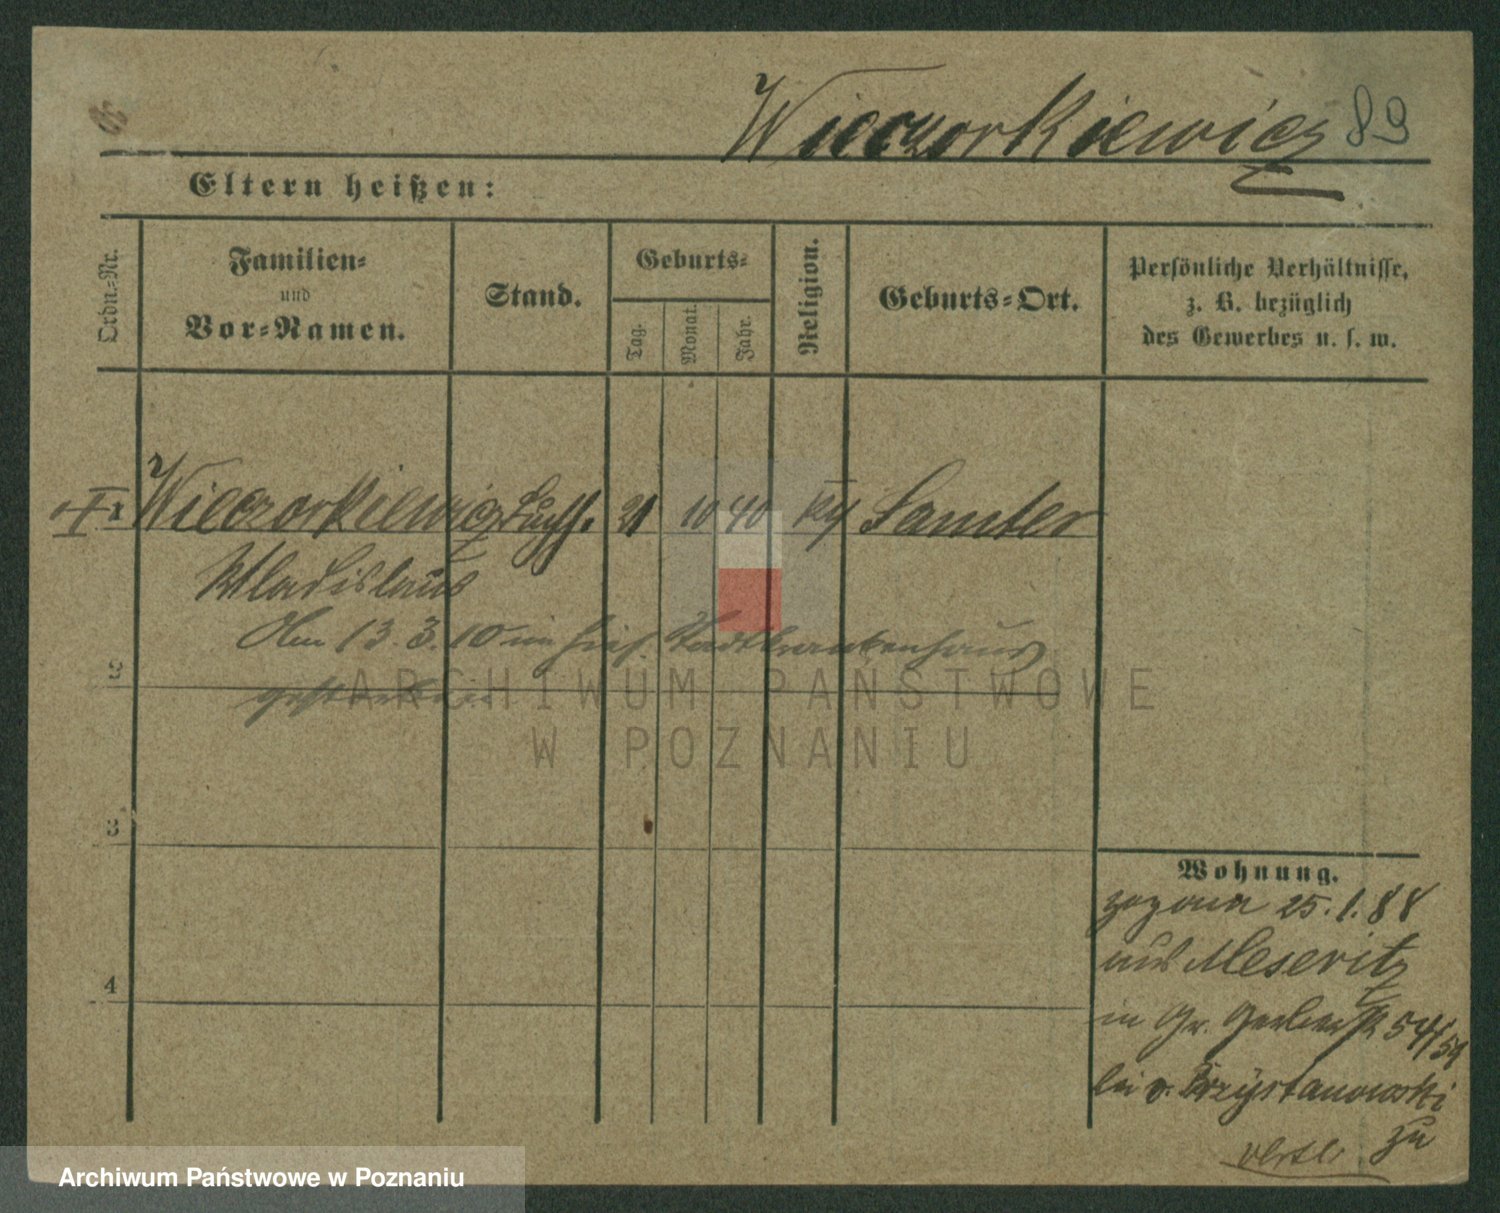 Wieczorkiewicz 89
Eltern heißen:
Ordn.-Nr.
Familien-
und
Vor-Namen.
Stand.
Geburts-
Tag.
Monat.
Jahr.
Religion.
Geburts-Ort.
Persönliche Verhältnisse,
z. B. bezüglich
des Gewerbes u. s. w.
Wieczorkiewicz 21 10 40 Samter
Wladislaus
Am 13.3.10 im hies. Stadtkrankenhaus
gestorben
2
3
4
Wohnung.
25.1.88
aus Meseritz
in Gr. Gerberstr 54/59
bei v. Trzystanowski
zu
ARCHIWUM PAŃSTWOWE
W POZNANIU
Archiwum Państwowe w Poznaniu